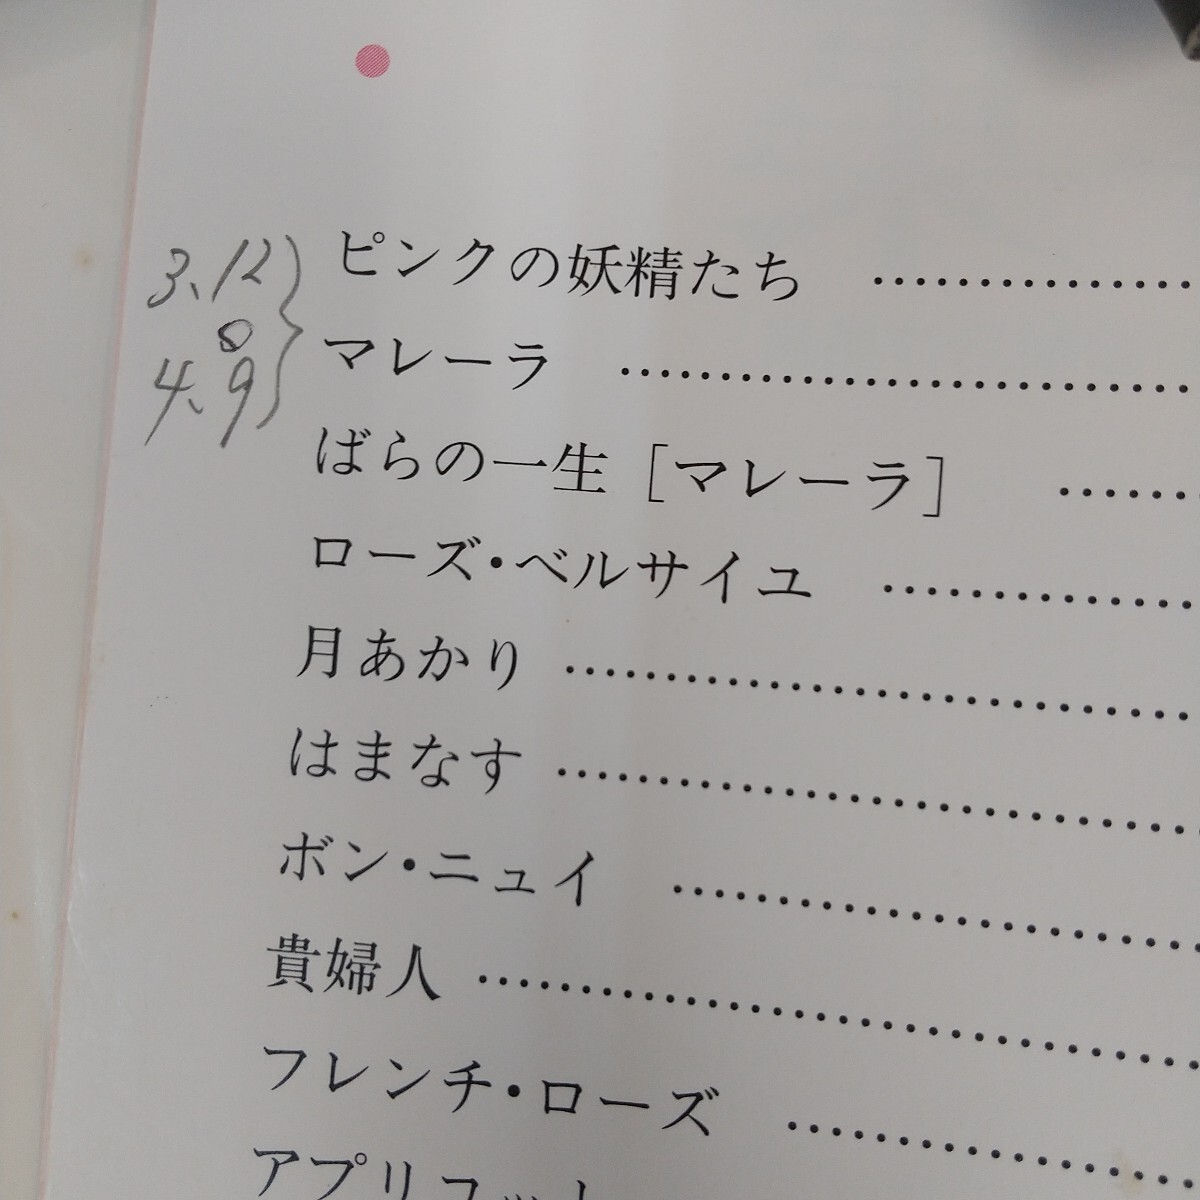 3、12
8
4、9
ピンクの妖精たち ……………
マレーラ ……………………
ばらの一生［マレーラ］ ……
ローズ・ベルサイユ …………
月あかり ……………………
はまなす ……………………
ボン・ニュイ …………………
貴婦人 ………………………
フレンチ・ローズ ……………
アプリコット